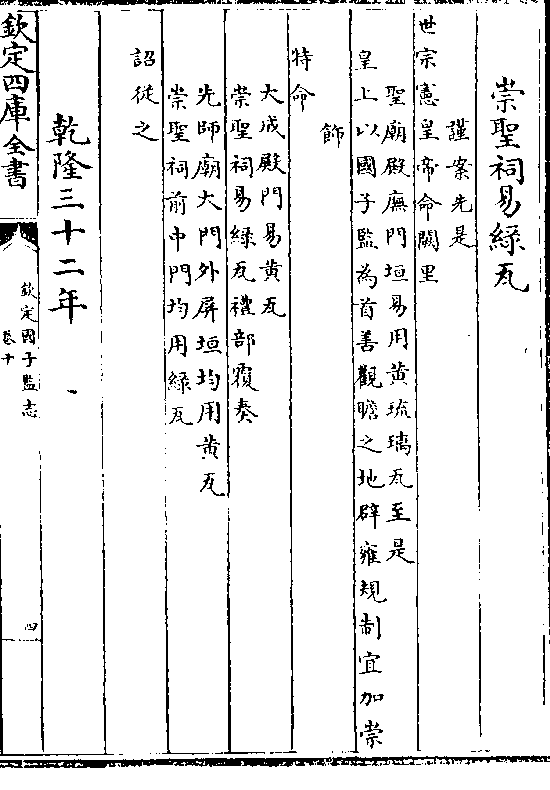 崇聖祠易綠瓦
謹案先是
世宗憲皇帝命闕里
聖廟殿廡門垣易用黄琉璃瓦至是
皇上以國子監為首善觀瞻之地辟雍規制宜加崇
飾
特命
大成殿門易黄瓦
崇聖祠易綠瓦禮部覆奏
先師廟大門外屏垣均用黄瓦
崇聖祠前中門均用綠瓦
詔從之
乾隆三十二年
欽定四庫全書
欽定國子監志
卷十
四